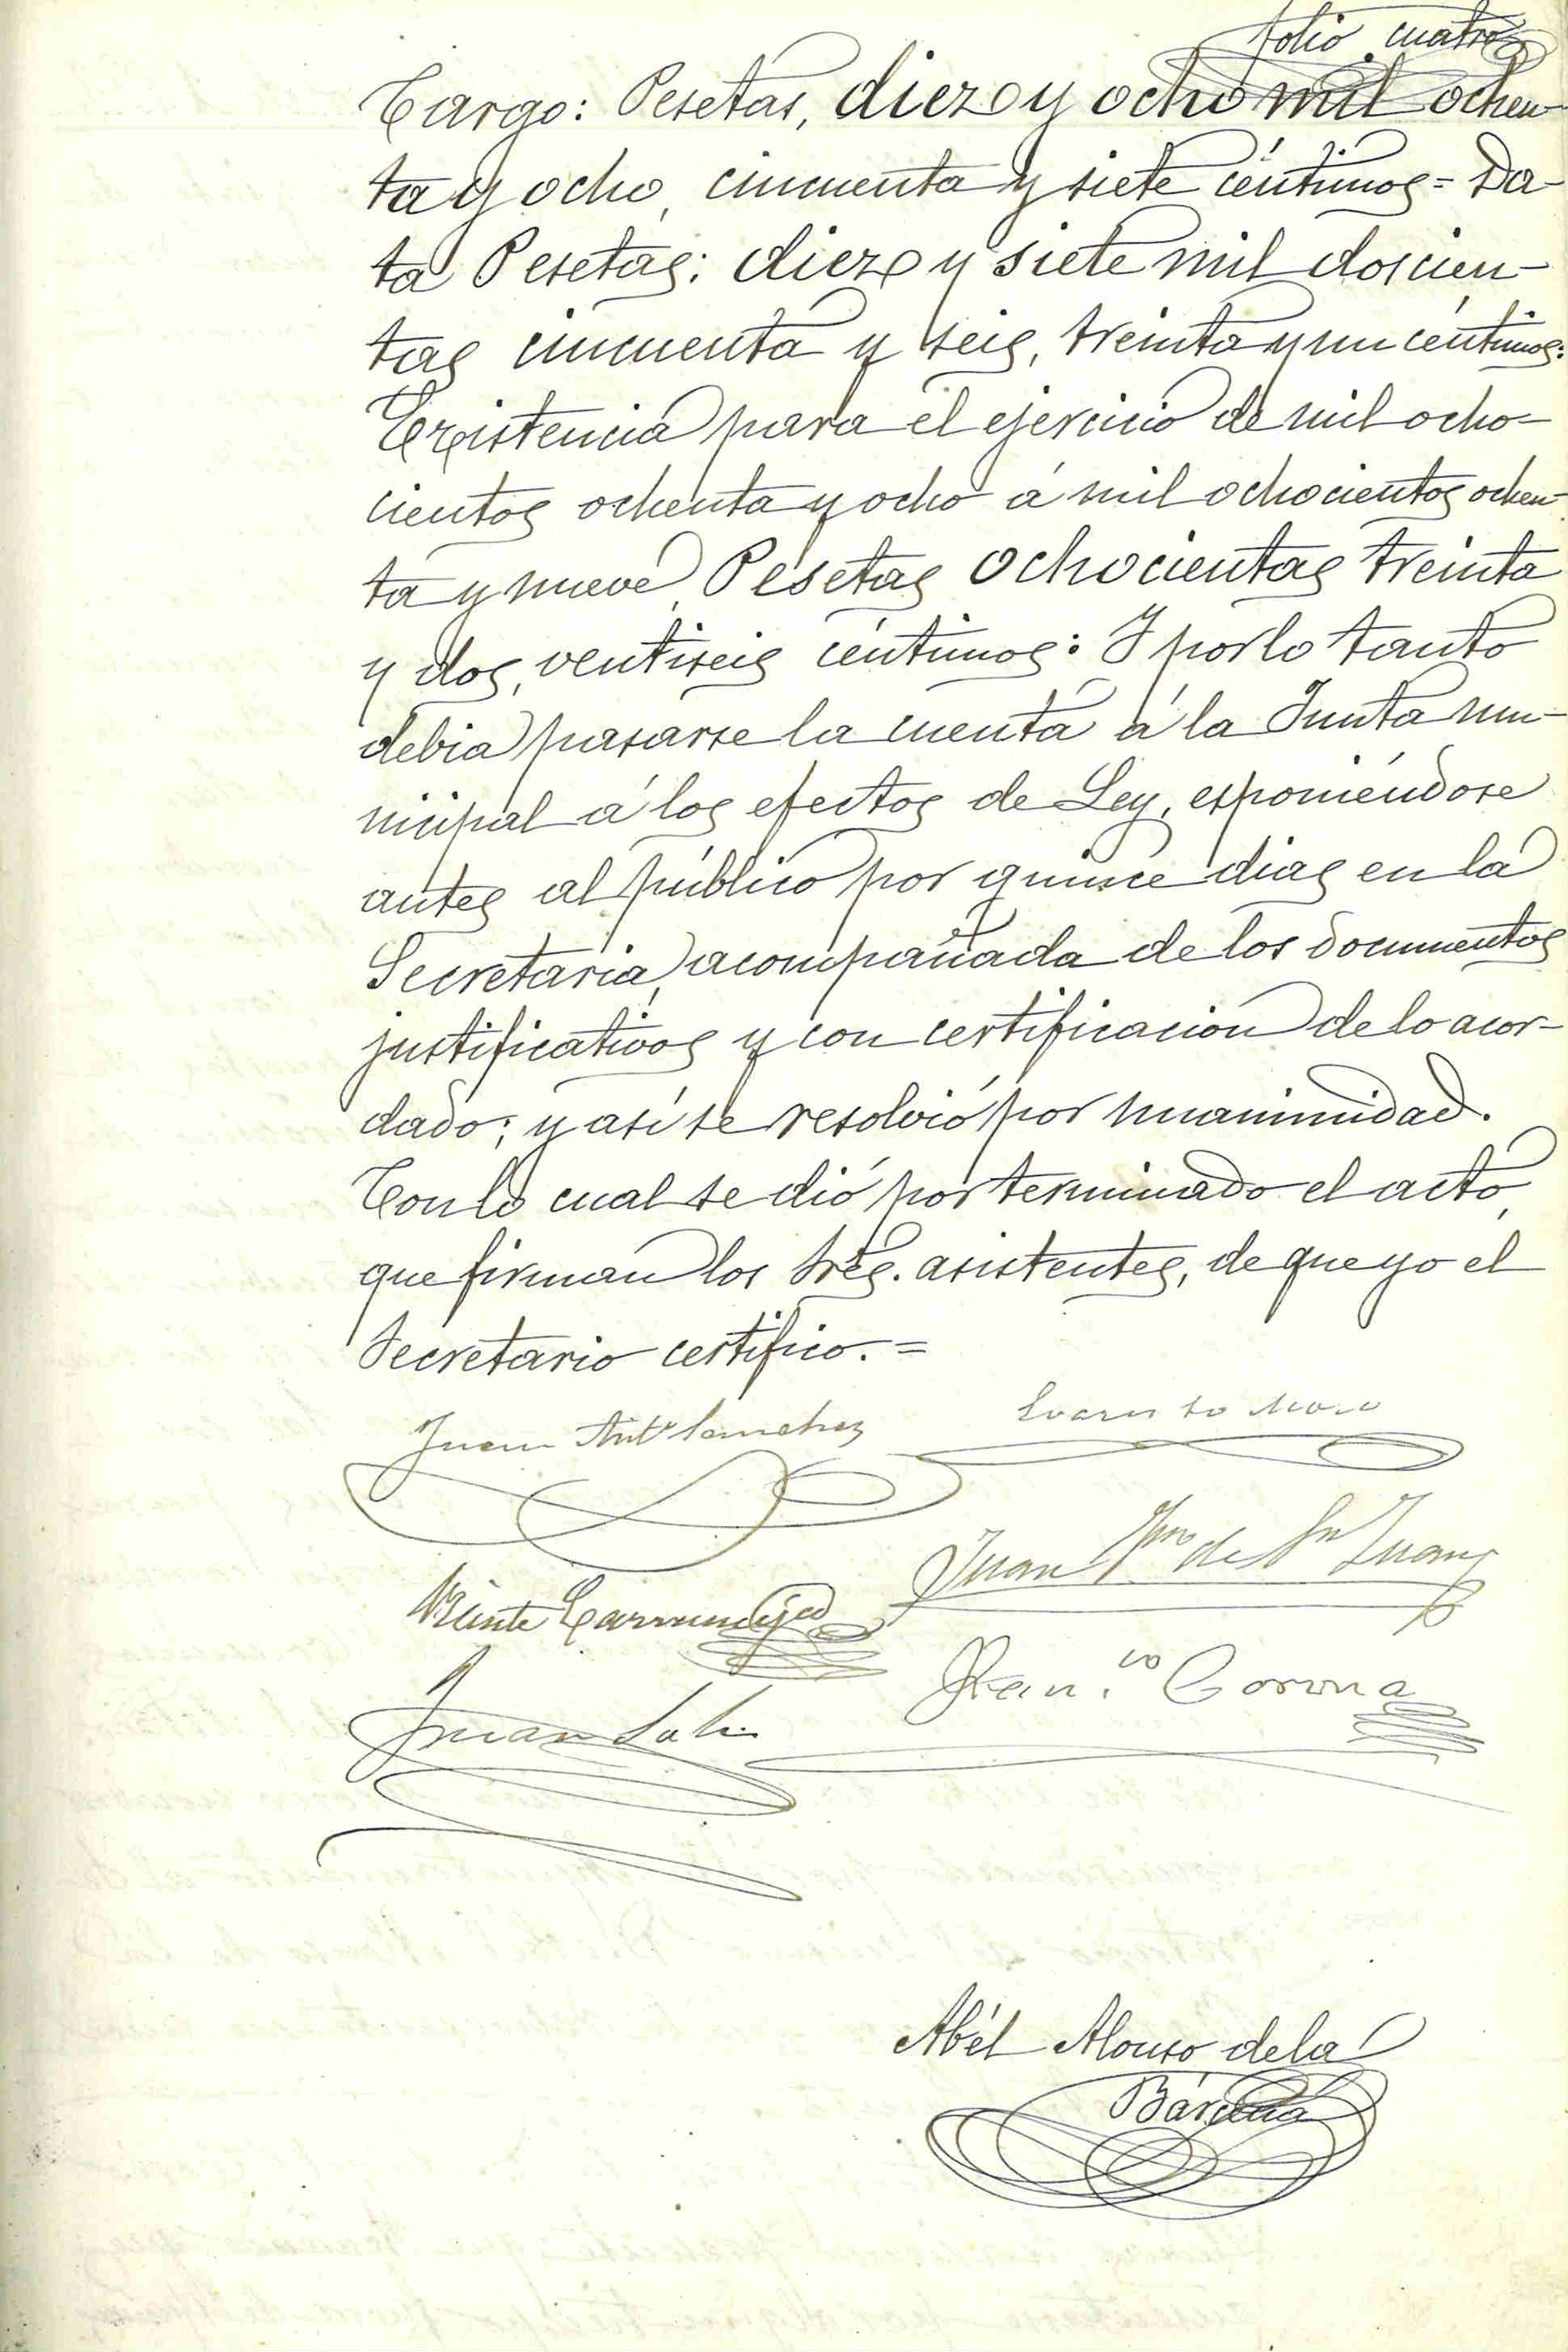 folio cuatro
Cargo: Pesetas, diez y ocho mil ochen-
ta y ocho, cincuenta y siete céntimos = Da-
ta Pesetas: diez y siete mil doscien-
tas cincuenta y seis, treinta y un céntimos:
Existencia para el ejercicio de mil ocho-
cientos ochenta y ocho á mil ochocientos ochen-
ta y nueve, Pesetas ochocientas treinta
y dos, ventiseis céntimos: Y por lo tanto
debia pasarse la cuenta á la Junta mu-
nicipal á los efectos de Ley, esponiéndose
antes al público por quince dias en la
Secretaria, acompañada de los documentos
justificativos y con certificacion de lo acor-
dado; y así se resolvió por unanimidad.
Con lo cual se dió por terminado el acto,
que firman los Sres. asistentes, de que yo el
Secretario certifico. =
Juan Antº Sanchez
Evaristo Moro
Juan de Sn Juan
Vicente
Franco Corona
Juan
Abél Alonso de la
Bárcena